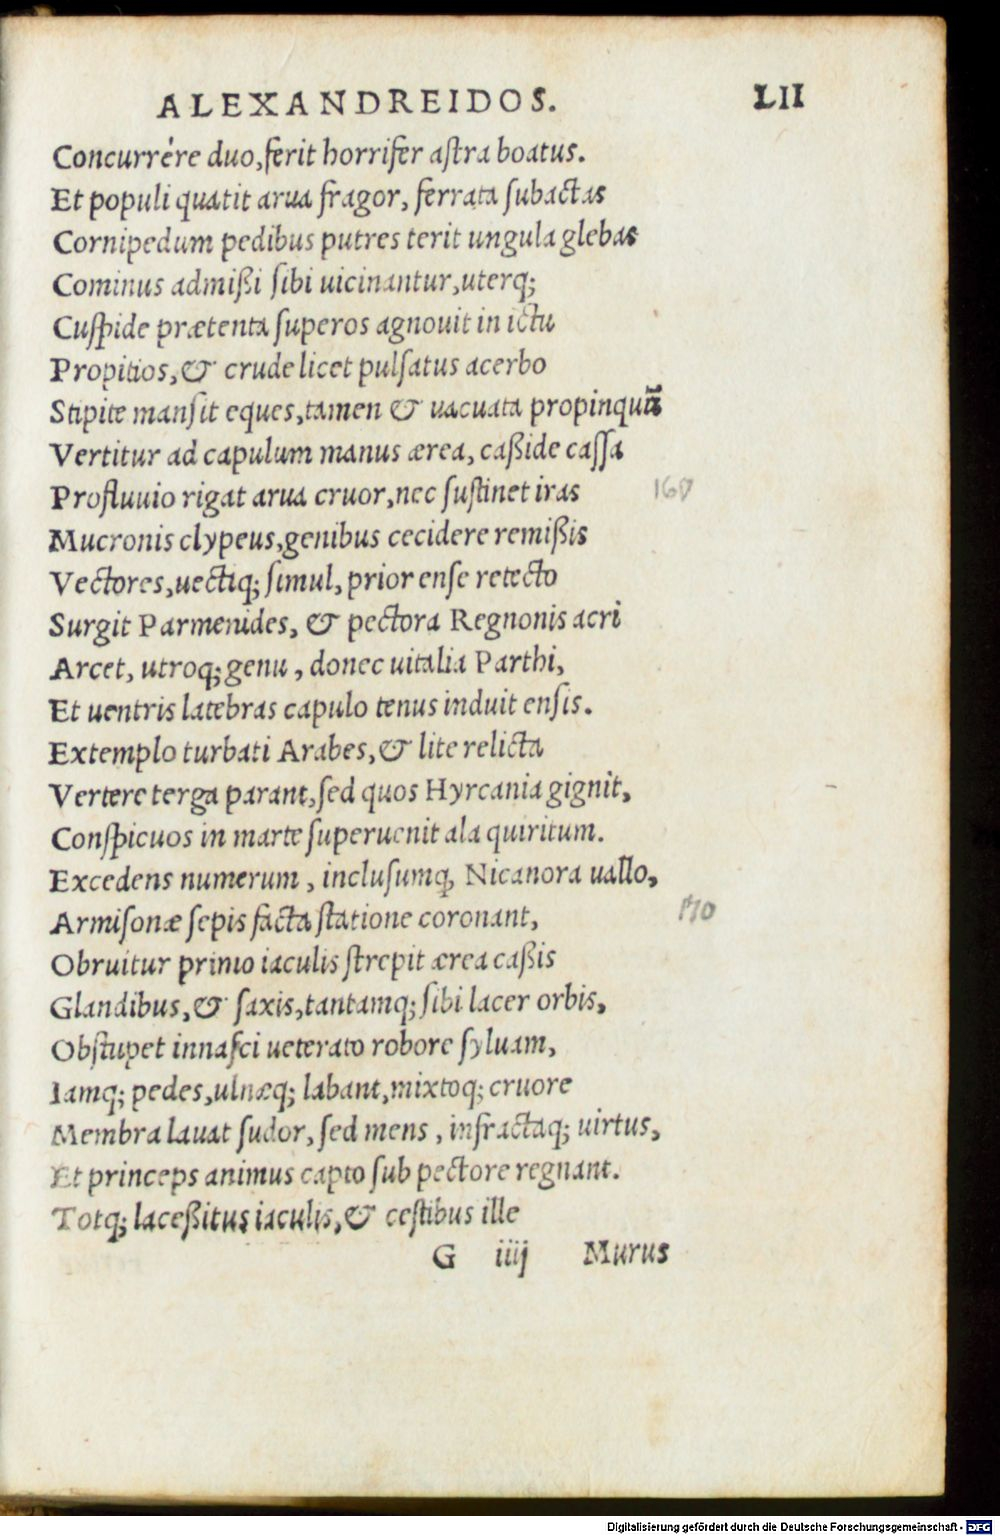 ALEXANDREIDOS. LII
Concurrêre duo, ferit horrifer aſtra boatus.
Et populi quatit arua fragor, ferrata ſubactas
Cornipedum pedibus putres terit ungula glebas
Cominus admißi ſibi uicinantur, uterq;
Cuſpide prætenta ſuperos agnouit in ictu
Propitios, & crude licet pulſatus acerbo
Stipite manſit eques, tamen & uacuata propinquũ
Vertitur ad capulum manus ærea, caßide caſſa
Profluuio rigat arua cruor, nec ſuſtinet iras 160
Mucronis clypeus, genibus cecidere remißis
Vectores, uectiq; ſimul, prior enſe retecto
Surgit Parmenides, & pectora Regnonis acri
Arcet, utroq; genu, donec uitalia Parthi,
Et uentris latebras capulo tenus induit enſis.
Extemplo turbati Arabes, & lite relicta
Vertere terga parant, ſed quos Hyrcania gignit,
Conſpicuos in marte ſuperuenit ala quiritum.
Excedens numerum, incluſumq; Nicanora uallo,
Armiſonæ ſepis facta ſtatione coronant, 170
Obruitur primo iaculis ſtrepit ærea caßis
Glandibus, & ſaxis, tantamq; ſibi lacer orbis,
Obſtupet innaſci ueterato robore ſyluam,
Iamq; pedes, ulnæq; labant, mixtoq; cruore
Membra lauat ſudor, ſed mens, infractaq; uirtus,
Et princeps animus capto ſub pectore regnant.
Totq; laceßitus iaculis, & ceſtibus ille
G iiij Murus
Digitalisierung gefördert durch die Deutsche Forschungsgemeinschaft - DFG